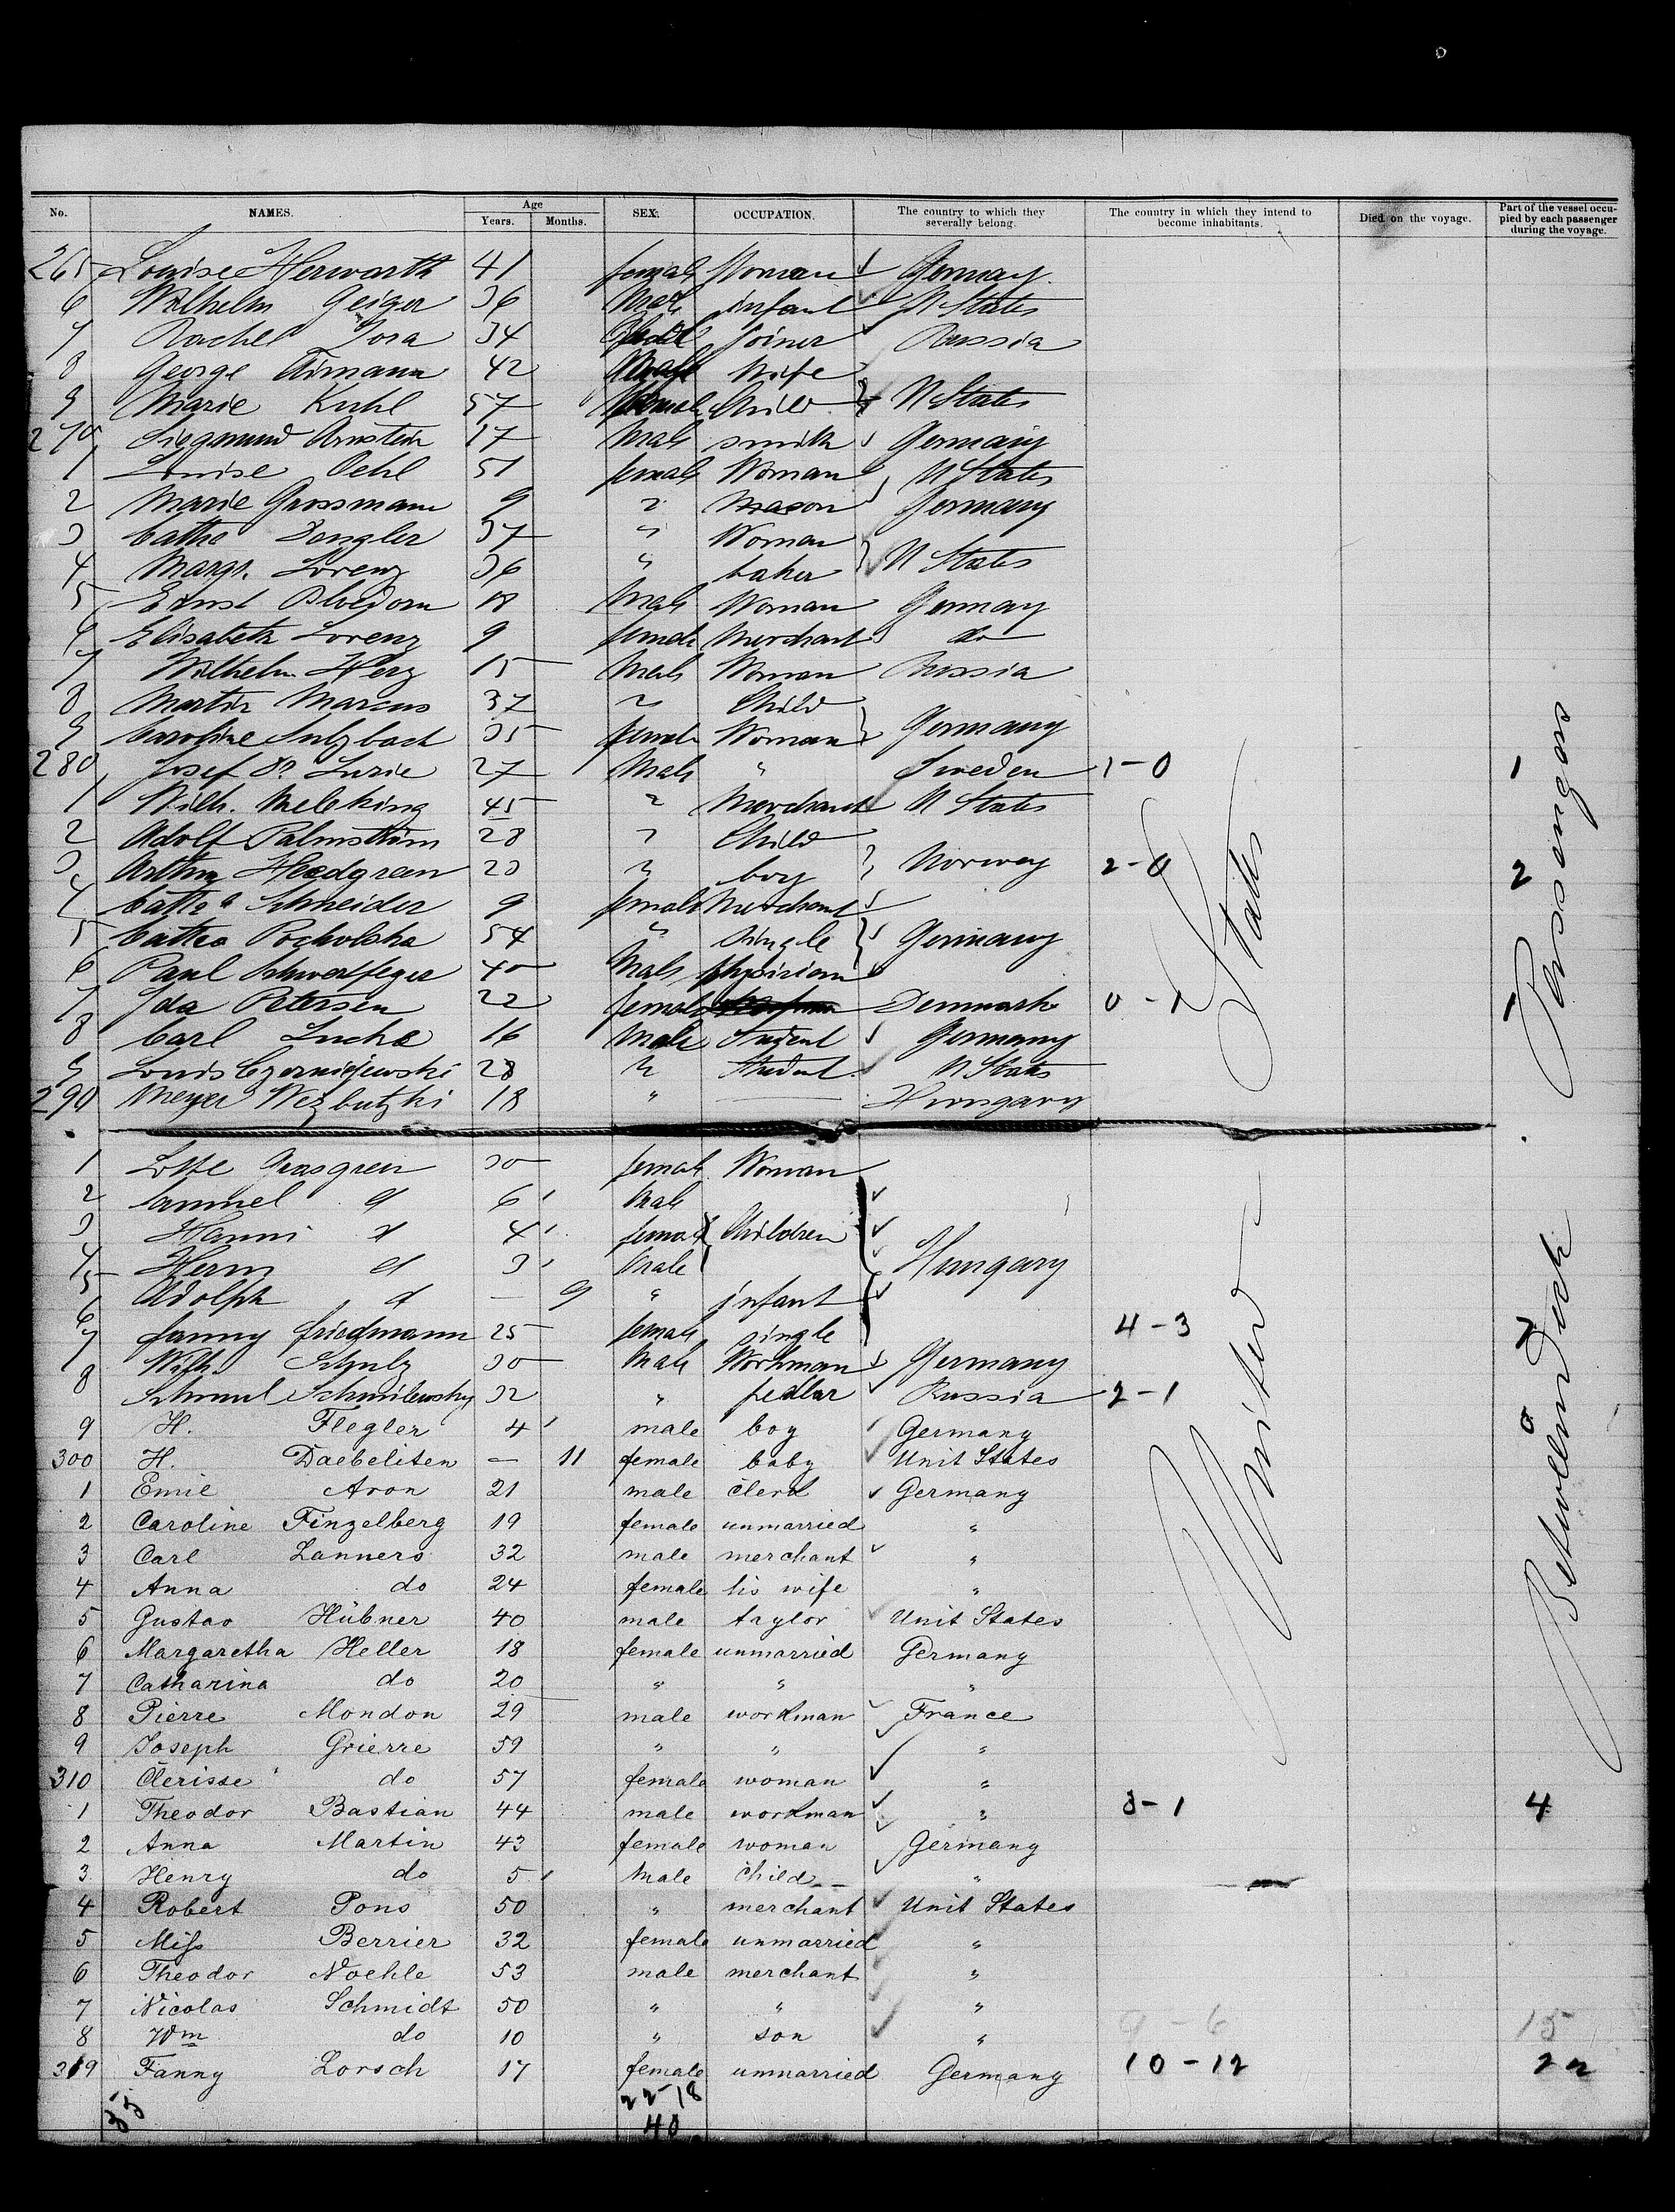 No. NAMES. Age Years. Months. SEX. OCCUPATION. The country to which they severally belong. The country in which they intend to become inhabitants. Died on the voyage. Part of the vessel occupied by each passenger during the voyage.
265 Louise Herwarth 41 female Woman Germany
6 Wilhelm Geiger 36 Male infant U States
7 Rachel 34 joiner Russia
8 George 42 Male Wife
9 Marie Kuhl 57 female Child U States
270 Siegmund Arnstein 17 Male smith Germany
1 Louise Oehl 51 female Woman U States
2 Marie Grossmann 9 " Mason Germany
3 Cathe Dengler 37 " Woman
4 Margr. Lorenz 36 " baker U States
5 Ernst Bloedorn 18 Male Woman Germany
6 Elisabeth Lorenz 9 female Merchant do
7 Wilhelm Herz 15 Male Woman Russia
8 Martin Marcus 37 " Child
9 Caroline Sulzbach 35 female Woman Germany
280 Josef Lurie 27 Male " Sweden 1-0 1
1 Wilh. Melching 45 " Merchant U States
2 Adolf Palmström 28 " Child
3 Arthur Hedgreen 23 " boy Norway 2-0 2
4 Cath Schneider 9 female Merchant
5 Cathea Pocholska 54 " single Germany
6 Paul Schwerlfeger 40 Male physician
7 Ida Petersen 22 female Denmark 0-1 1
8 Carl 16 Male Student Germany
9 Louis Czerniejewski 28 " Student U States
290 Meyer Wezbutzki 18 " — Hungary
1 Lotte Grasgren 30 female Woman
2 Samuel d 6 Male
3 Hanni d 4 female Children
4 Herm d 3 Male Hungary
5 Adolph d — 9 " infant
6 Fanny Friedmann 25 female single 4-3
7 Wilh Schulz 30 Male Workman Germany
8 Schmul Schmilewsky 32 " pedlar Russia 2-1
9 H. Flegler 4 male boy Germany
300 H. Daebeliten — 11 female baby Unit States
1 Emil Aron 21 male clerk Germany
2 Caroline Finzelberg 19 female unmarried "
3 Carl Lanners 32 male merchant "
4 Anna do 24 female his wife "
5 Gustav Hübner 40 male taylor Unit States
6 Margaretha Heller 18 female unmarried Germany
7 Catharina do 20 " " "
8 Pierre Mondon 29 male workman France
9 Joseph Grierre 59 " " "
310 Clerisse do 57 female woman "
1 Theodor Bastian 44 male workman " 3-1 4
2 Anna Martin 43 female woman Germany
3 Henry do 5 Male child "
4 Robert Pons 50 " merchant Unit States
5 Miss Berrier 32 female unmarried "
6 Theodor Noehle 53 male merchant "
7 Nicolas Schmidt 50 " " "
8 Wm do 10 " son " 9-6 15
319 Fanny Lorsch 17 female unmarried Germany 10-12 22
35 22-18
40
United States
Betwellen Deck Passengers